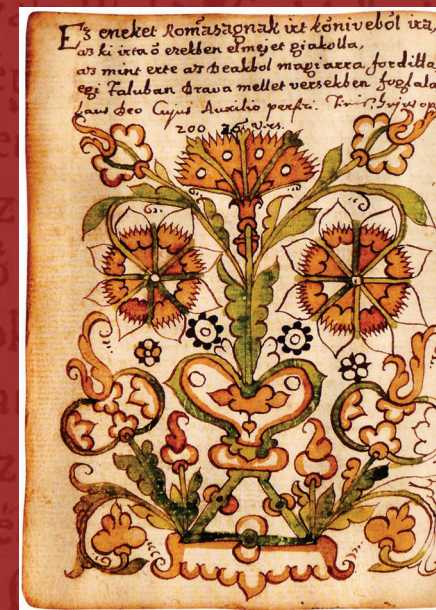 Ez eneket Romasagnak irt köniveböl ira,
az ki irta ö ezekben elmejet gjakolla,
az mint erte az Deakbol magiarra fordilla
egi Faluban Drava mellet versekben foglala
Laus Deo Cujus Auxilio perfri.
200